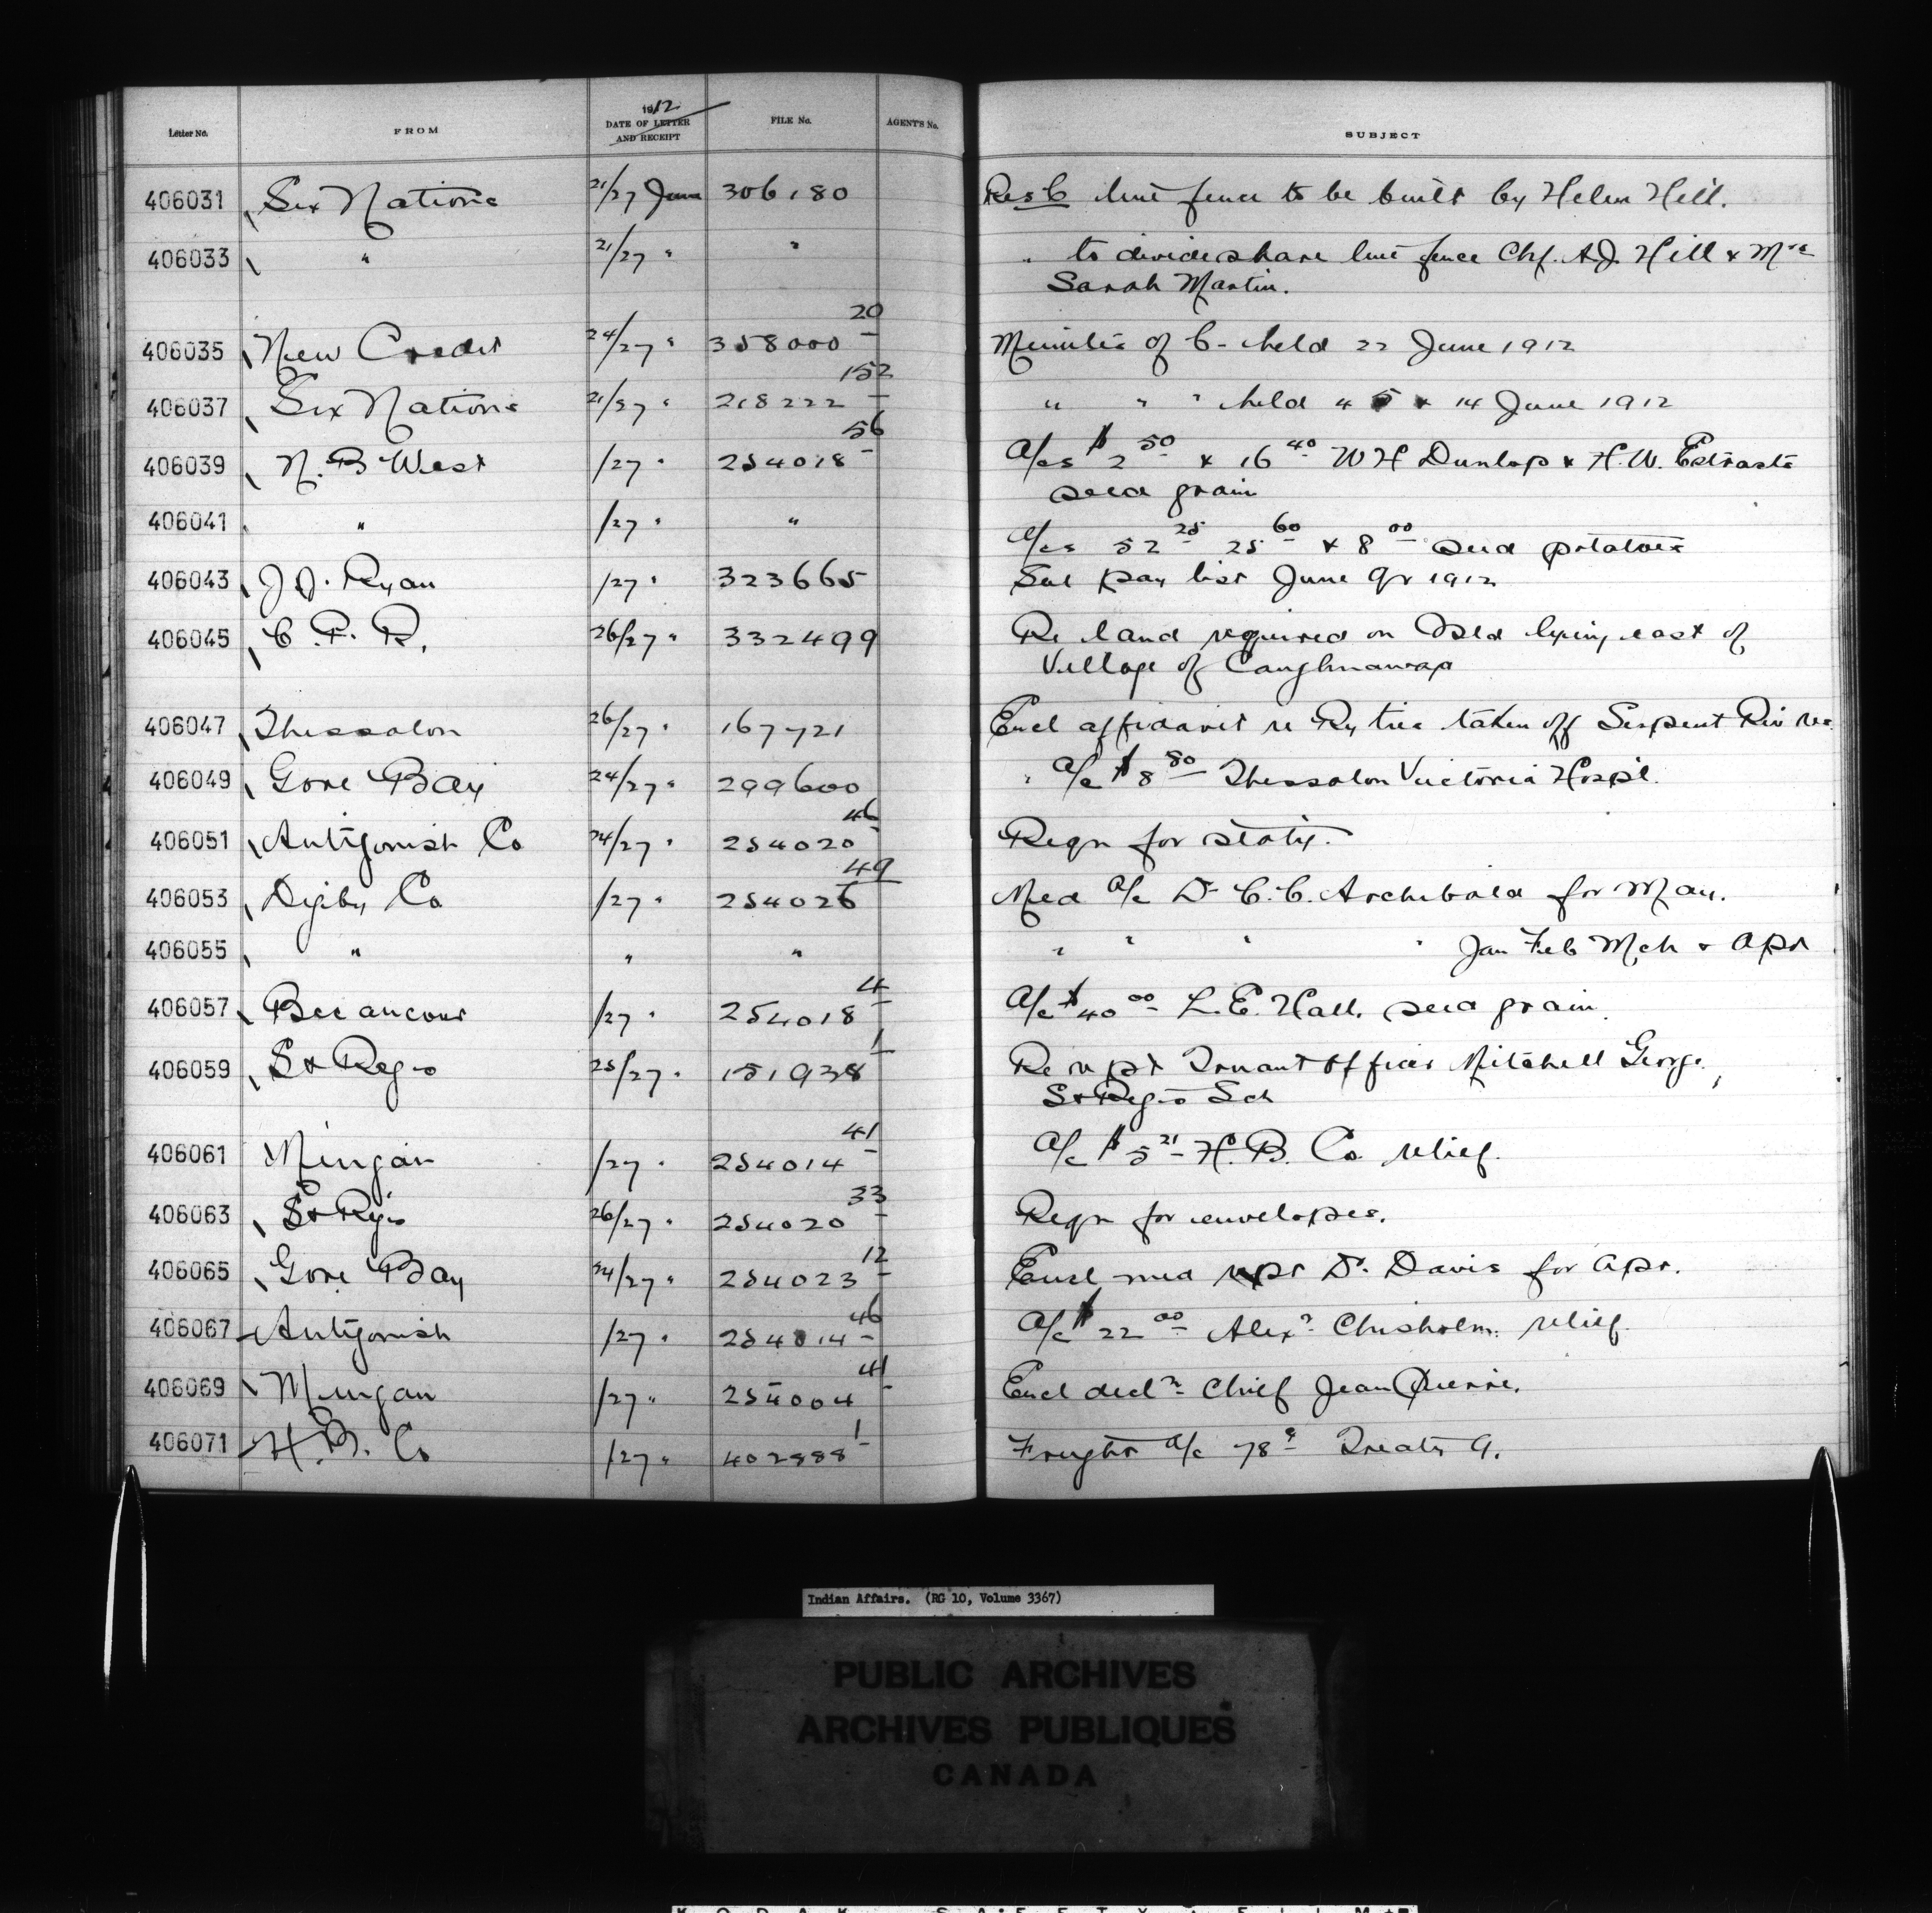 Letter No. FROM 1912 DATE OF LETTER AND RECEIPT FILE No. AGENT'S No. SUBJECT
406031 Six Nations 21/27 June 306180 Res C line fence to be built by Helen Hill.
406033 " 21/27 " " " to divide share line fence Chf. A.J. Hill & Mrs
Sarah Martin.
406035 New Credit 24/27 " 358000 20 Minutes of C- held 22 June 1912
406037 Six Nations 21/27 " 218222 152 " " " held 4 5 & 14 June 1912
406039 N. B West /27 " 254018 56 A/cs $2 50 & 16 40 W H Dunlop & H. W.
seed grain
406041 " /27 " " A/cs 52 25 25 60 & 8 00 seed potatoes
406043 J. J. Ryan /27 " 323665 Sal pay list June Qr 1912
406045 C. P. R. 26/27 " 332499 Re land required on Isld lying east of
Village of Caughnawaga
406047 Thessalon 26/27 " 167721 Encl affidavit re Ry ties taken off Serpent Riv res
406049 Gore Bay 24/27 " 299600 " A/c $8 80 Thessalon Victoria Hospl.
406051 Antigonish Co 24/27 " 254020 46 Reqn for staty.
406053 Digby Co /27 " 254026 49 Med A/c Dr C. C. Archibald for May.
406055 " " " " " " " Jan Feb Mch & Apr
406057 Becancour /27 " 254018 4 A/c $40 00 L. E. Hall. seed grain.
406059 St Regis 25/27 " 151938 1 Re Truant Officer Mitchell George,
St Regis Sch
406061 Mingan /27 " 254014 41 A/c $5 21 H. B. Co relief.
406063 St Regis 26/27 " 254020 33 Reqn for envelopes.
406065 Gore Bay 24/27 " 254023 12 Encl med rept Dr. Davis for Apr.
406067 Antigonish /27 " 254014 46 A/c $22 00 Alexr Chisholm. relief.
406069 Mingan /27 " 254004 41 Encl decln Chief Jean Pierre.
406071 H. B. Co /27 " 402988 1 Freight A/c 78 Treaty 9.
Indian Affairs. (RG 10, Volume 3367)
PUBLIC ARCHIVES
ARCHIVES PUBLIQUES
CANADA
KODAK SAFETY FILM